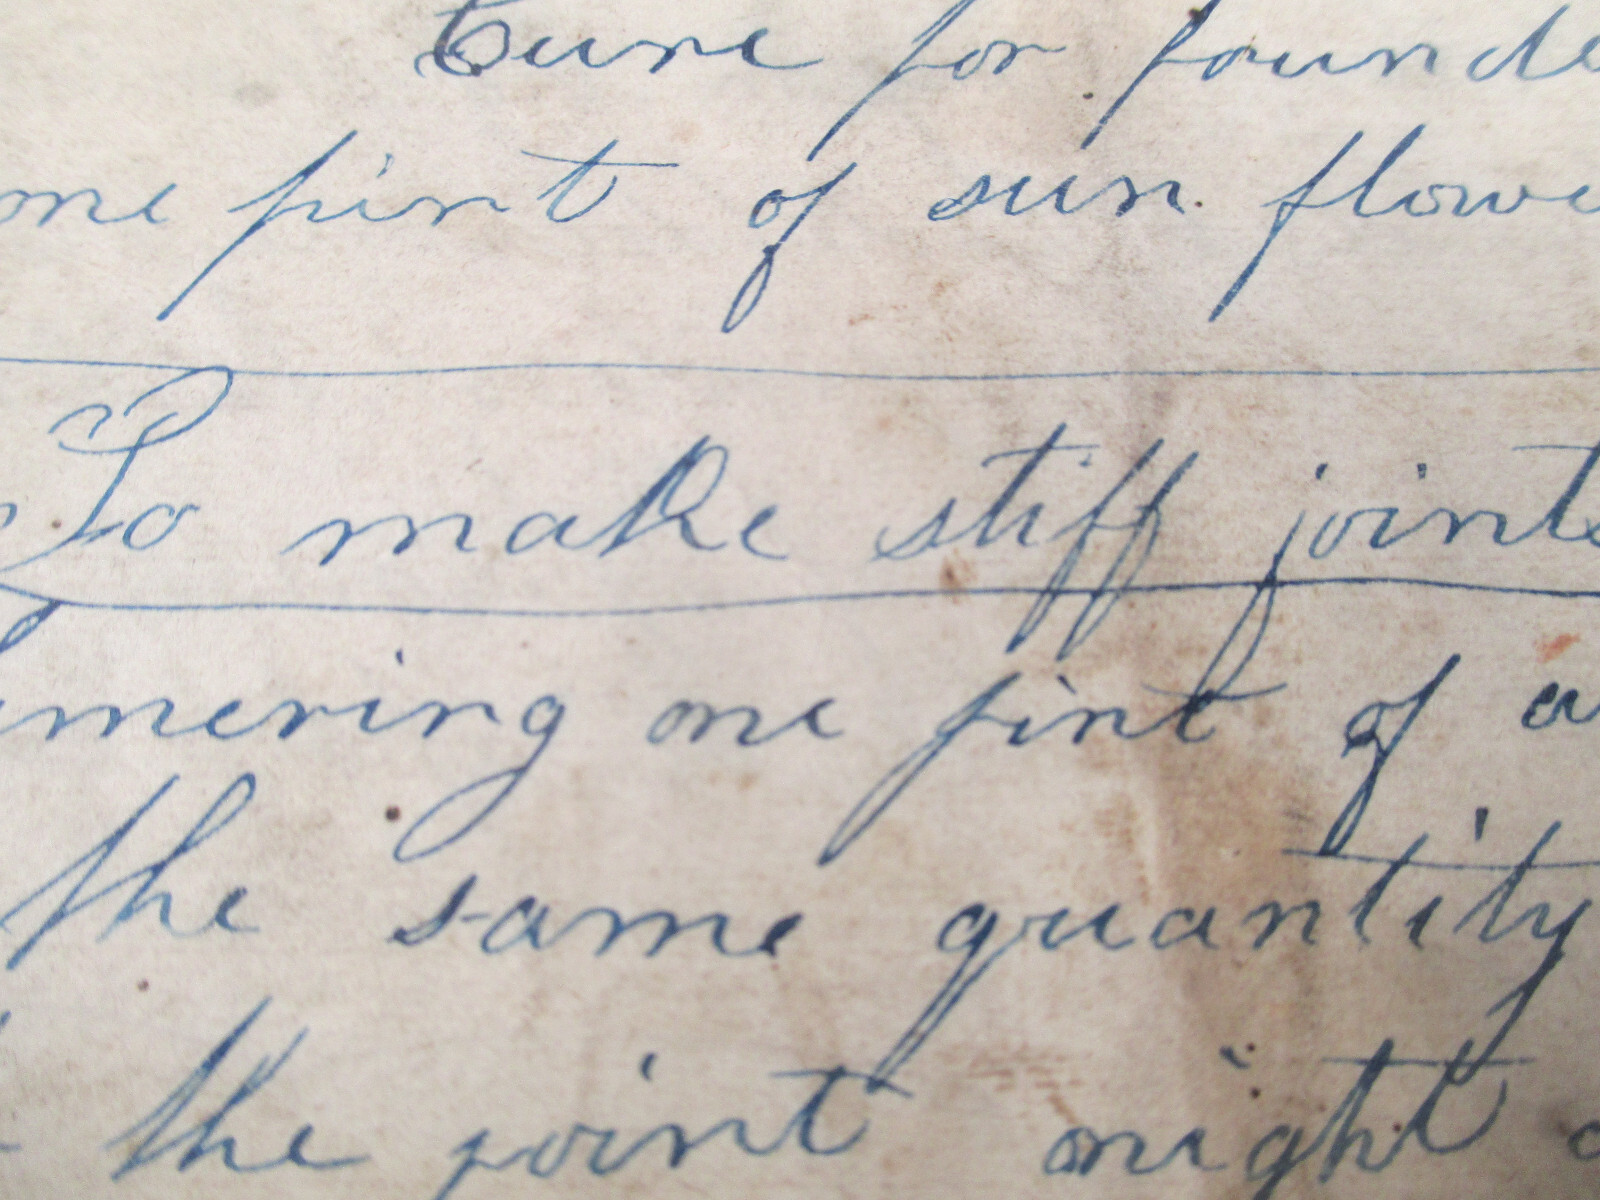 Cure for founde
one pint of sun flowe
To make stiff joints
mering one pint of a
the same quantity
the joint night